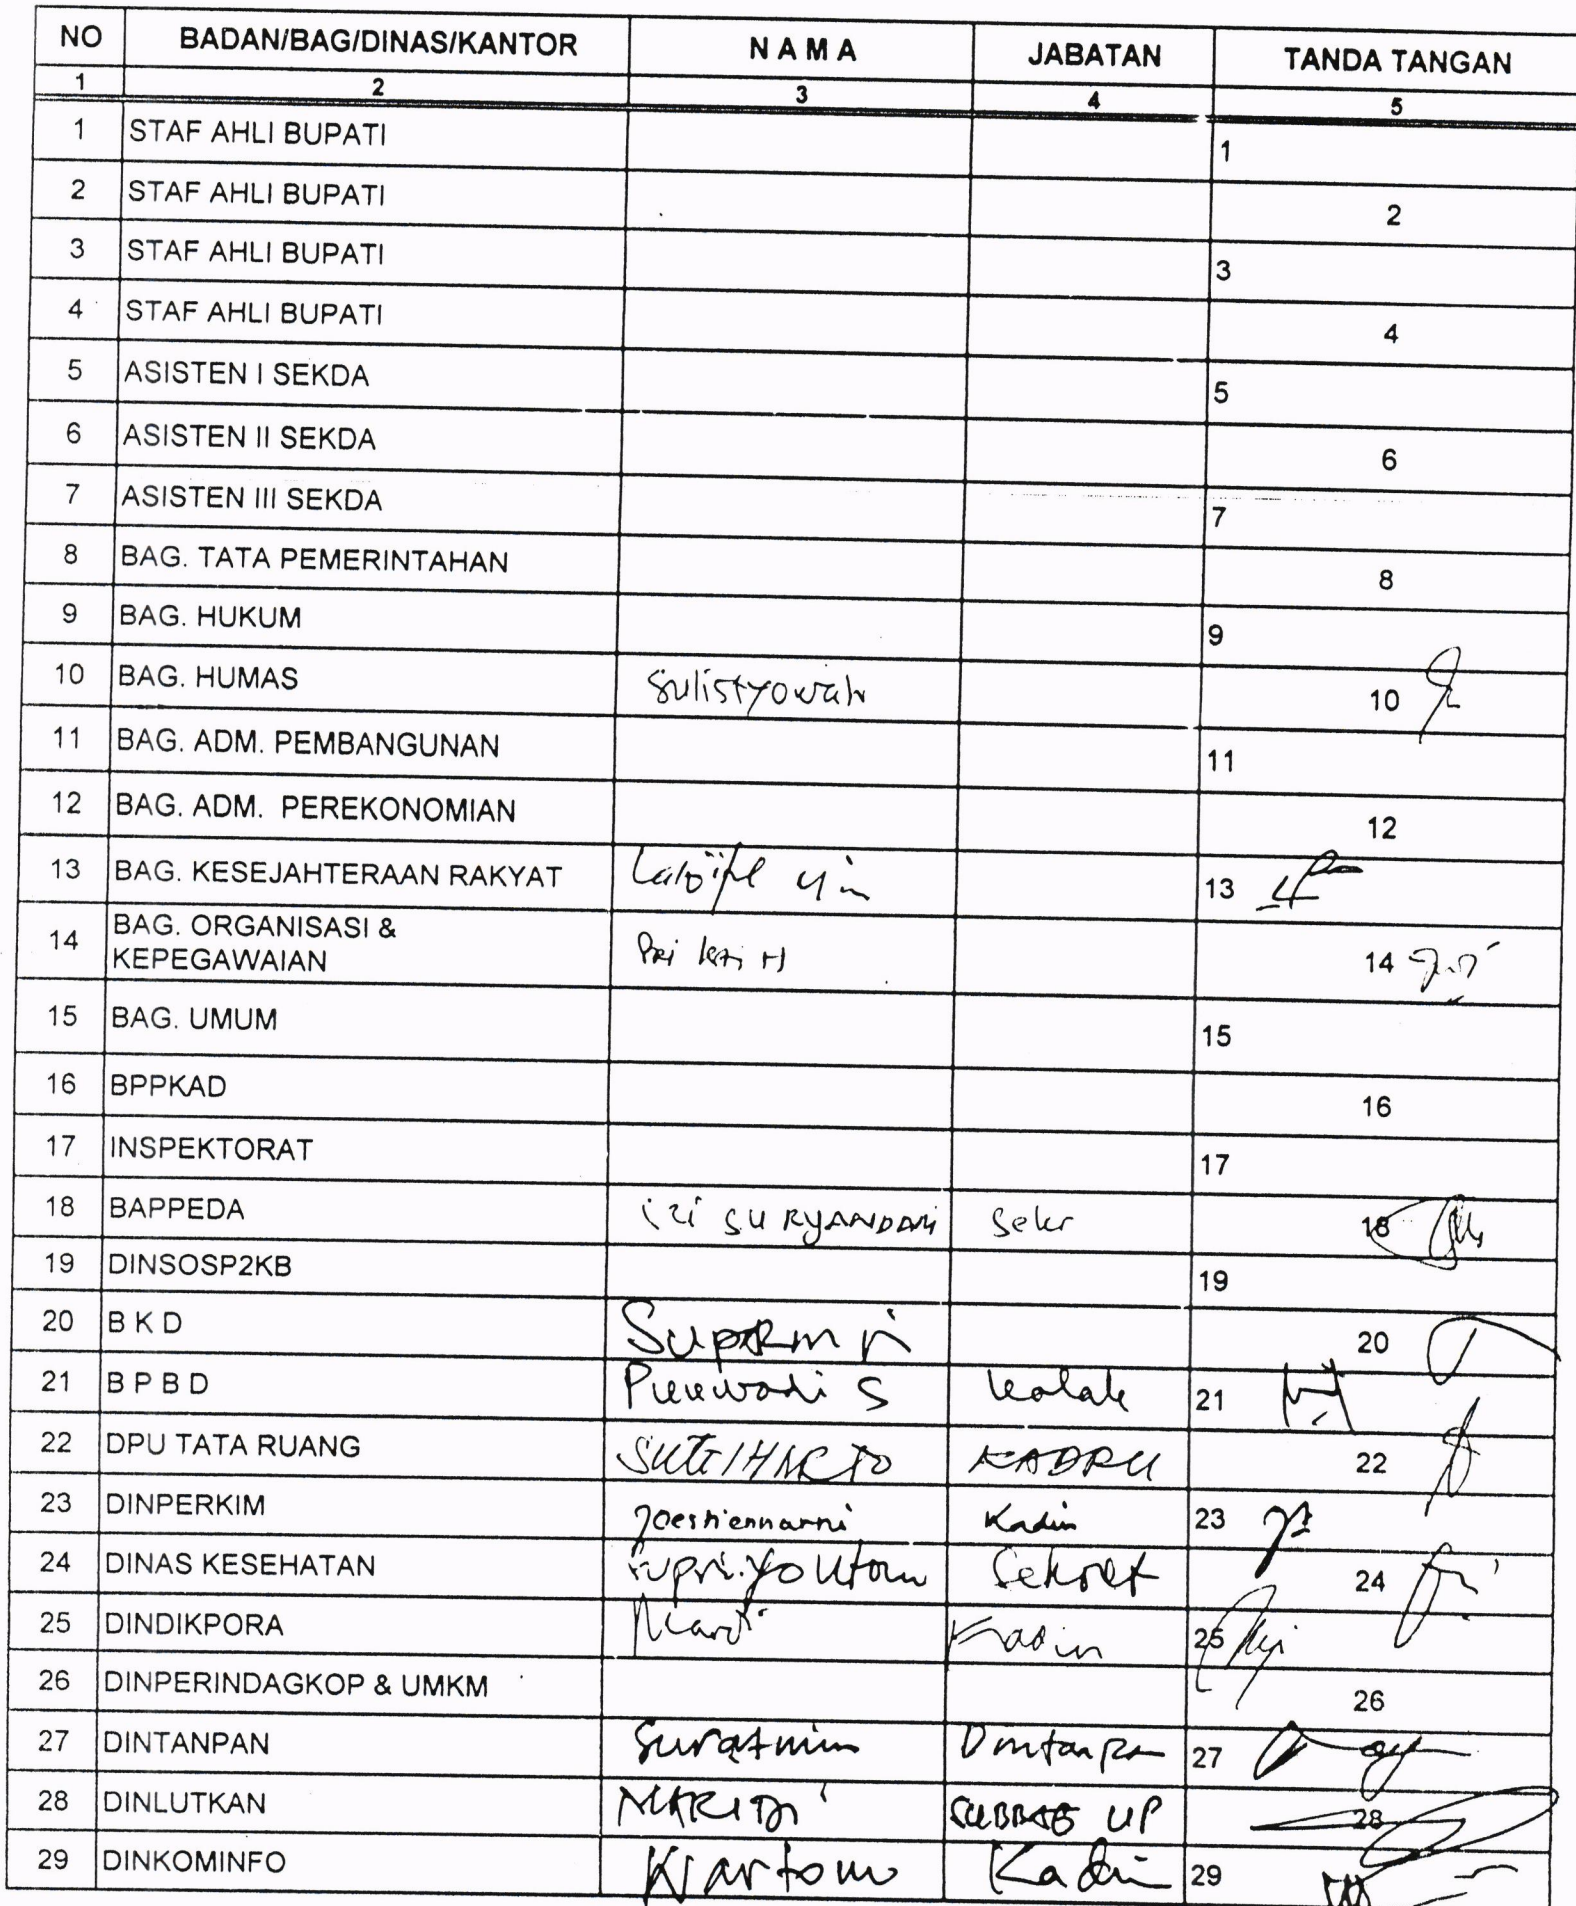 NO BADAN/BAG/DINAS/KANTOR N A M A JABATAN TANDA TANGAN
1 2 3 4 5
1 STAF AHLI BUPATI 1
2 STAF AHLI BUPATI 2
3 STAF AHLI BUPATI 3
4 STAF AHLI BUPATI 4
5 ASISTEN I SEKDA 5
6 ASISTEN II SEKDA 6
7 ASISTEN III SEKDA 7
8 BAG. TATA PEMERINTAHAN 8
9 BAG. HUKUM 9
10 BAG. HUMAS Sulistyowati 10
11 BAG. ADM. PEMBANGUNAN 11
12 BAG. ADM. PEREKONOMIAN 12
13 BAG. KESEJAHTERAAN RAKYAT 13
14 BAG. ORGANISASI &
KEPEGAWAIAN 14
15 BAG. UMUM 15
16 BPPKAD 16
17 INSPEKTORAT 17
18 BAPPEDA SURYANDARI Sekr 18
19 DINSOSP2KB 19
20 B K D 20
21 B P B D Purwadi S kalak 21
22 DPU TATA RUANG SUGIHARTO 22
23 DINPERKIM Kadin 23
24 DINAS KESEHATAN Supriyo Utomo Sekret 24
25 DINDIKPORA Mardi Kadin 25
26 DINPERINDAGKOP & UMKM 26
27 DINTANPAN Suratmin Dintanpan 27
28 DINLUTKAN SUBBAG UP 28
29 DINKOMINFO Kartono Kadin 29